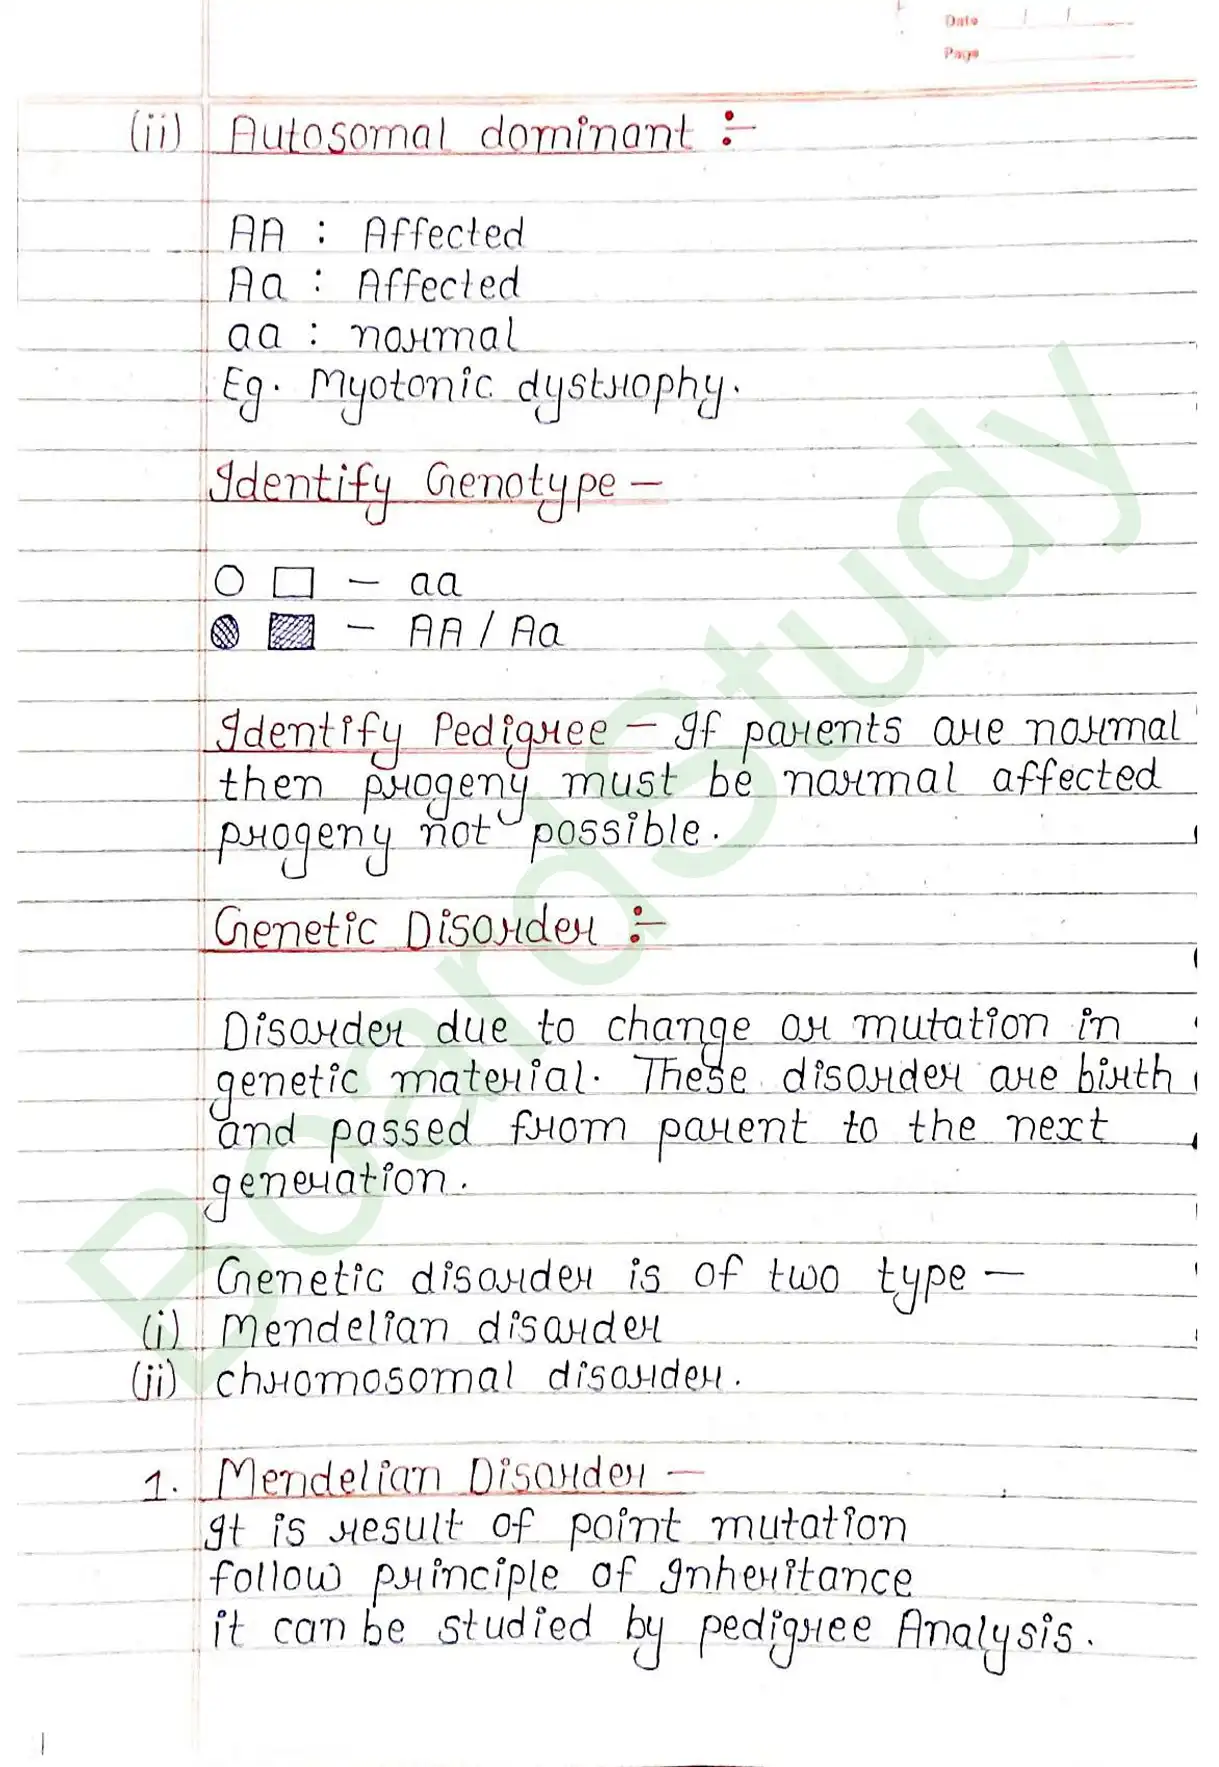 Date / /
Page
(ii) Autosomal dominant :-
AA : Affected
Aa : Affected
aa : normal
Eg. Myotonic dystrophy.
Identify Genotype -
○ □ - aa
- AA / Aa
Identify Pedigree - If parents are normal
then progeny must be normal affected
progeny not possible.
Genetic Disorder :-
Disorder due to change or mutation in
genetic material. These disorder are birth
and passed from parent to the next
generation.
Genetic disorder is of two type -
(i) Mendelian disorder
(ii) chromosomal disorder.
1. Mendelian Disorder -
It is result of point mutation
follow principle of Inheritance
it can be studied by pedigree Analysis.
BoardStudy